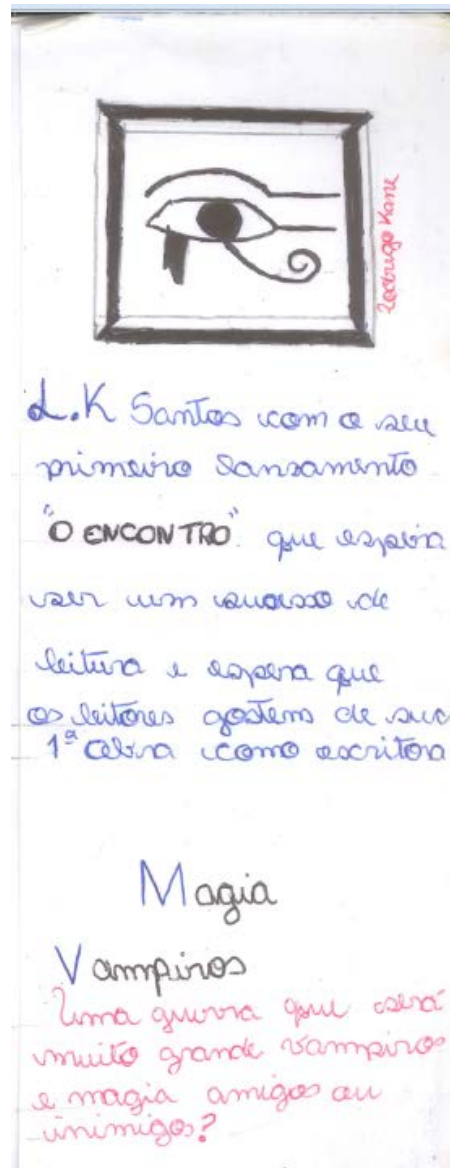 Rodrigo Kane
L.K Santos com o seu
primeiro lansamento
"O ENCONTRO" que espera
ser um sucesso de
leitura e espera que
os leitores gostem de sua
1ª obra como escritora
Magia
Vampiros
Uma guerra que será
muito grande vampiros
e magia amigos ou
inimigos?